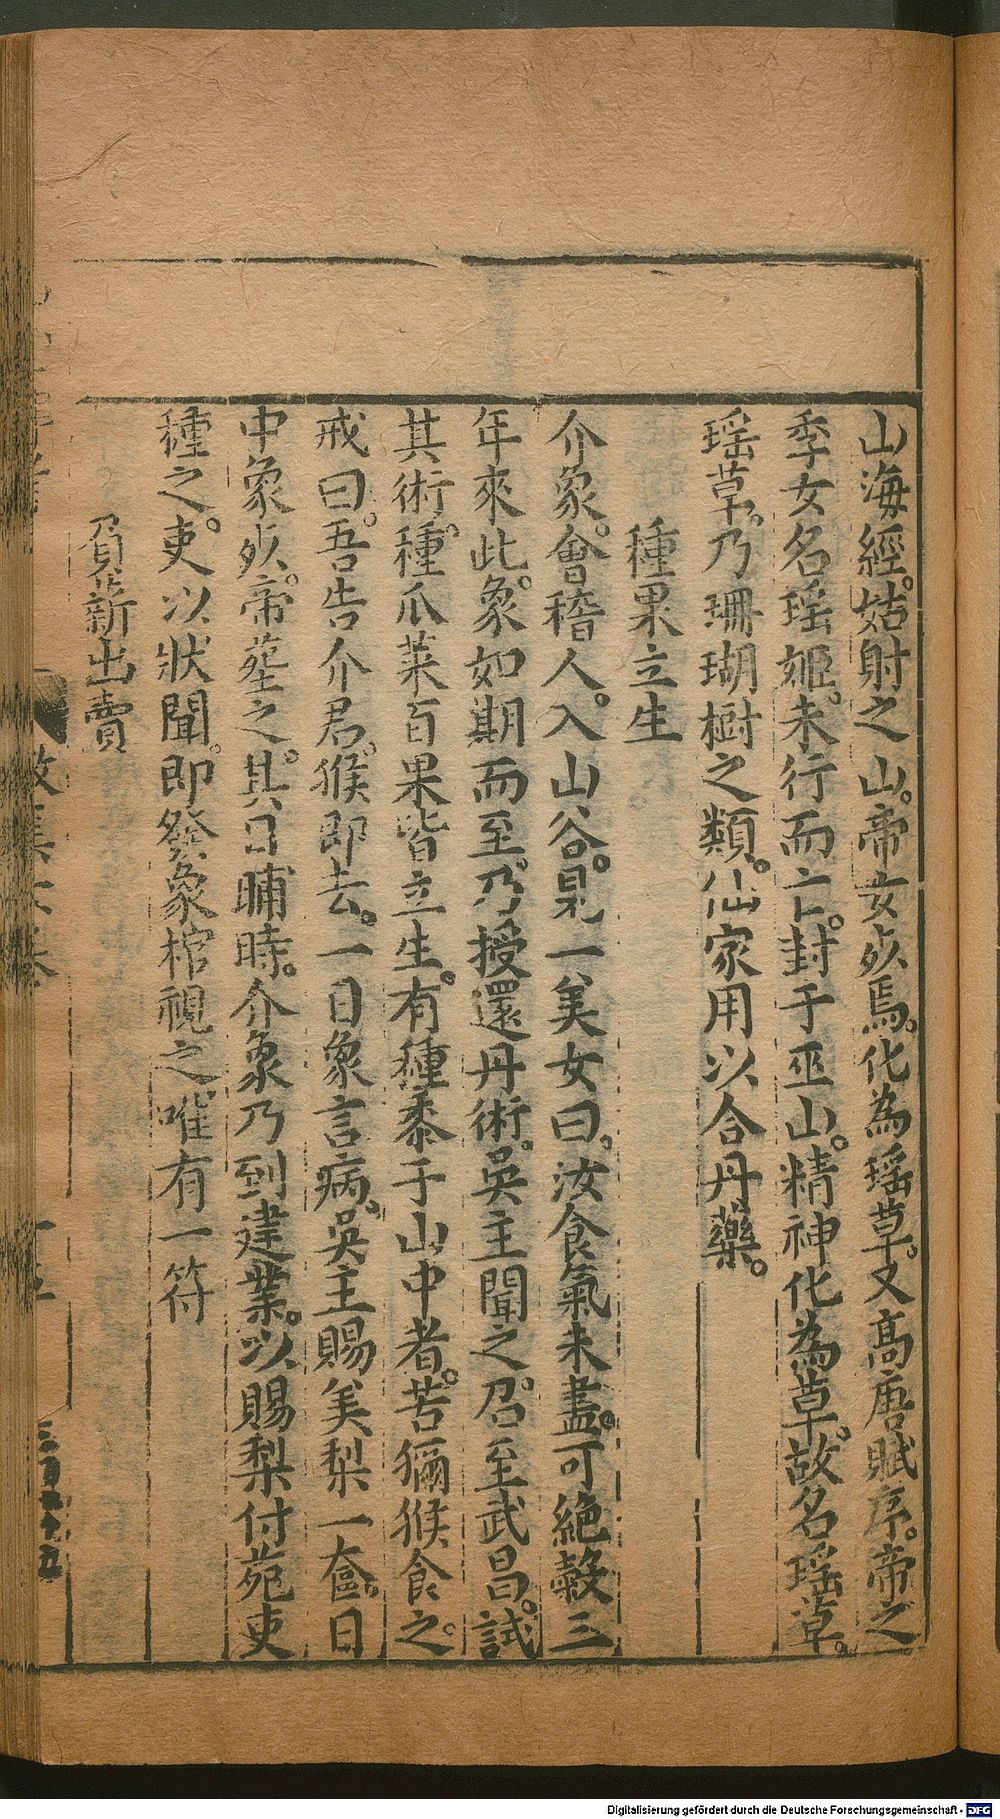 山海經。姑射之山。帝女死焉。化為瑶草。又髙唐賦序。帝之
季女名瑶姬。未行而亡。封于巫山。精神化為草。故名瑶草。
瑶草。乃珊瑚樹之類。仙家用以合丹藥。
種果立生
介象。會稽人。入山谷。見一美女曰。汝食氣未盡。可絶穀三
年來此。象如期而至。乃授還丹術。吳主聞之。召至武昌。試
其術。種瓜菜百果皆立生。有種黍于山中者。苦獼猴食之。
戒曰。吾告介君。猴即去。一日象言病。吳主賜美梨一奩。日
中象死。帝塟之。其日晡時。介象乃到建業。以賜梨付苑吏
種之。吏以狀聞。即發象棺視之。唯有一符
負薪出賣
Digitalisierung gefördert durch die Deutsche Forschungsgemeinschaft - DFG